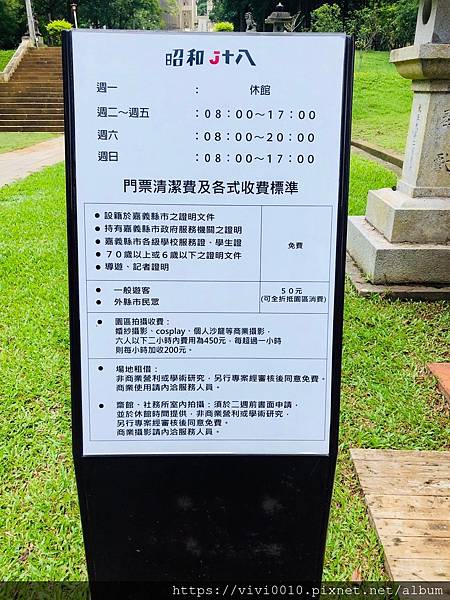 昭和 J十八
週一 : 休館
週二~週五 : 08:00~17:00
週六 : 08:00~20:00
週日 : 08:00~17:00
門票清潔費及各式收費標準
● 設籍於嘉義縣市之證明文件
● 持有嘉義縣市政府服務機關之證明
● 嘉義縣市各級學校服務證、學生證
● 70歲以上或6歲以下之證明文件
● 導遊、記者證明
免費
● 一般遊客
● 外縣市民眾
50元
(可全折抵園區消費)
● 園區拍攝收費:
婚紗攝影、cosplay、個人沙龍等商業攝影,
六人以下二小時內費用為450元,每超過一小時
則每小時加收200元。
● 場地租借:
非商業營利或學術研究,另行專案經審核後同意免費。
商業使用請內洽服務人員。
● 齋館、社務所室內拍攝:須於二週前書面申請,
並於休館時間提供,非商業營利或學術研究,
另行專案經審核後同意免費。
商業攝影請內洽服務人員。
https://vivi0010.pixnet.net/album